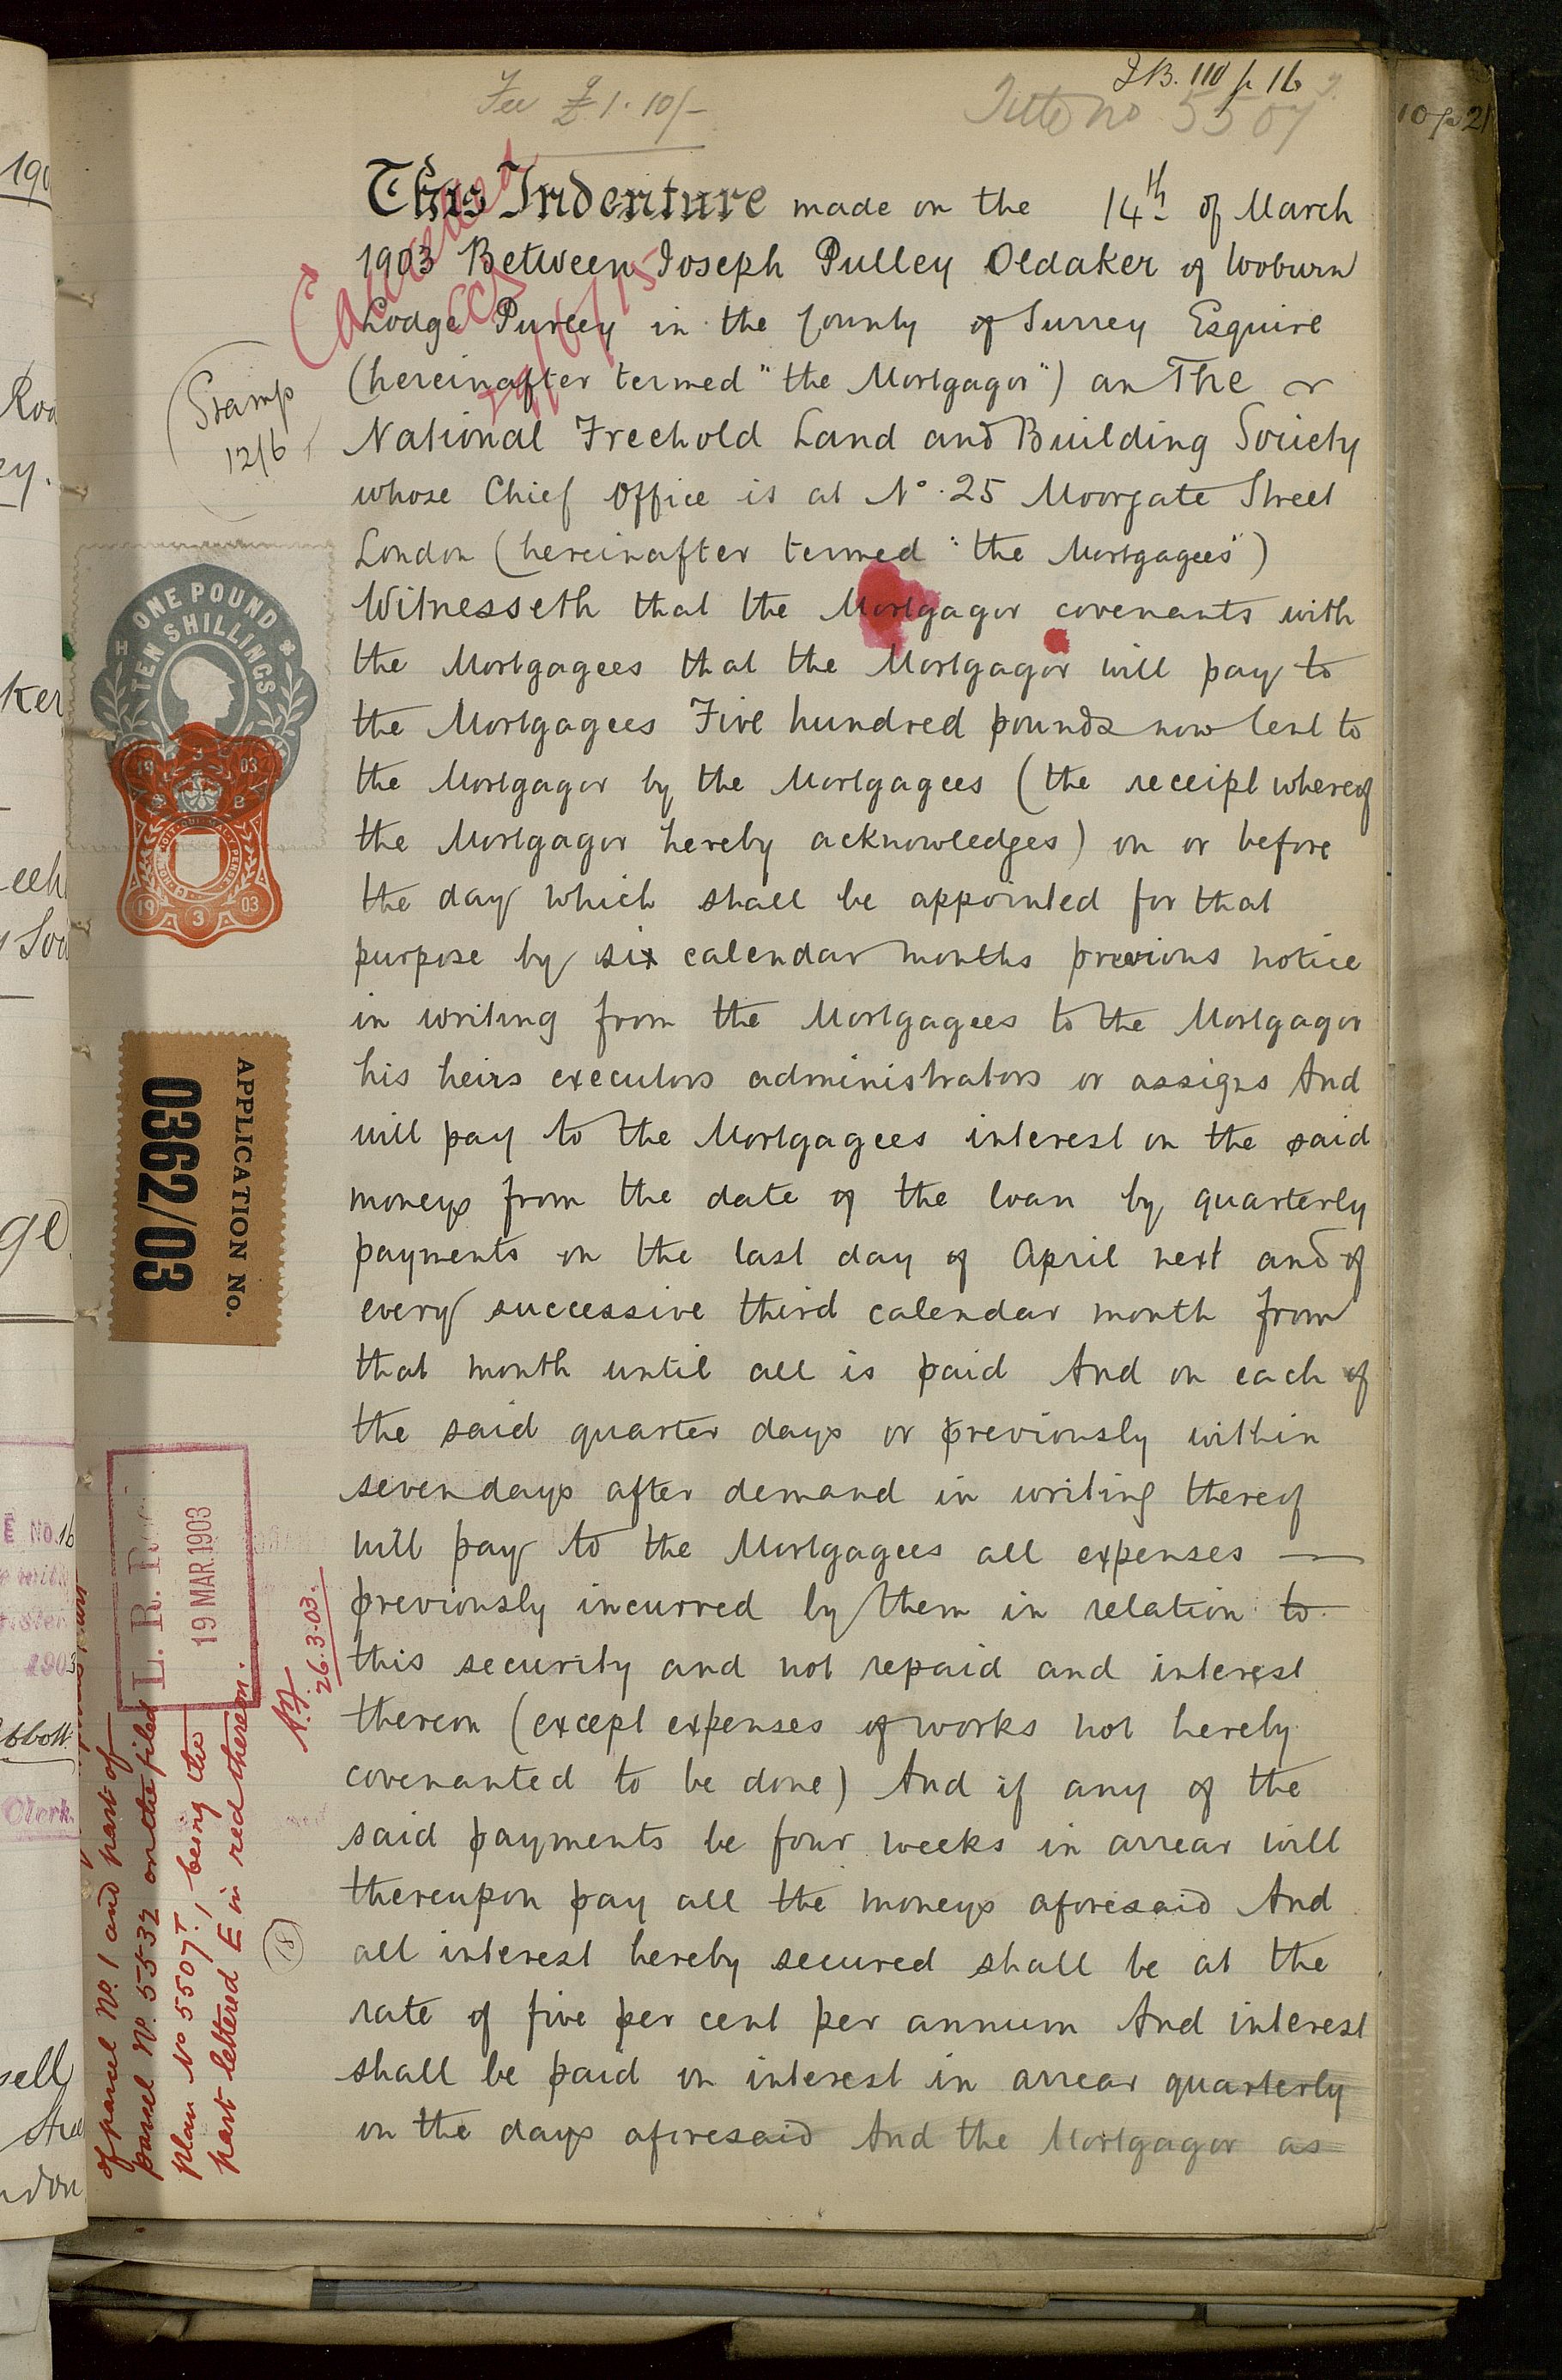 Fee £1.10/-
I.B. 110 p 16
Title no 5507
10 p 21
This Indenture made on the 14th of March
1903 Between Joseph Pulley Oldaker of Woburn
Lodge Purley in the County of Surrey Esquire
(hereinafter termed "the Mortgagor") an The
National Freehold Land and Building Society
whose Chief Office is at No. 25 Moorgate Street
London (hereinafter termed "the Mortgagees")
Witnesseth that the Mortgagor covenants with
the Mortgagees that the Mortgagor will pay to
the Mortgagees Five hundred pounds now lent to
the Mortgagor by the Mortgagees (the receipt whereof
the Mortgagor hereby acknowledges) on or before
the day which shall be appointed for that
purpose by six calendar months previous notice
in writing from the Mortgagees to the Mortgagor
his heirs executors administrators or assigns And
will pay to the Mortgagees interest on the said
moneys from the date of the loan by quarterly
payments on the last day of April next and of
every successive third calendar month from
that month until all is paid And on each of
the said quarter days or previously within
seven days after demand in writing thereof
will pay to the Mortgagees all expenses —
previously incurred by them in relation to
this security and not repaid and interest
thereon (except expenses of works not hereby
covenanted to be done) And if any of the
said payments be four weeks in arrear will
thereupon pay all the moneys aforesaid And
all interest hereby secured shall be at the
rate of five per cent per annum And interest
shall be paid on interest in arrear quarterly
on the days aforesaid And the Mortgagor as
Cancelled
Stamp
12/6
ONE POUND
TEN SHILLINGS
19 03
19 3 03
APPLICATION No.
0362/03
L. R. R
19 MAR. 1903
26.3.03.
of parcel No. 1 and part of
parcel No. 5532 on the filed
plan No 5507T, being the
part lettered E in red thereon.
18